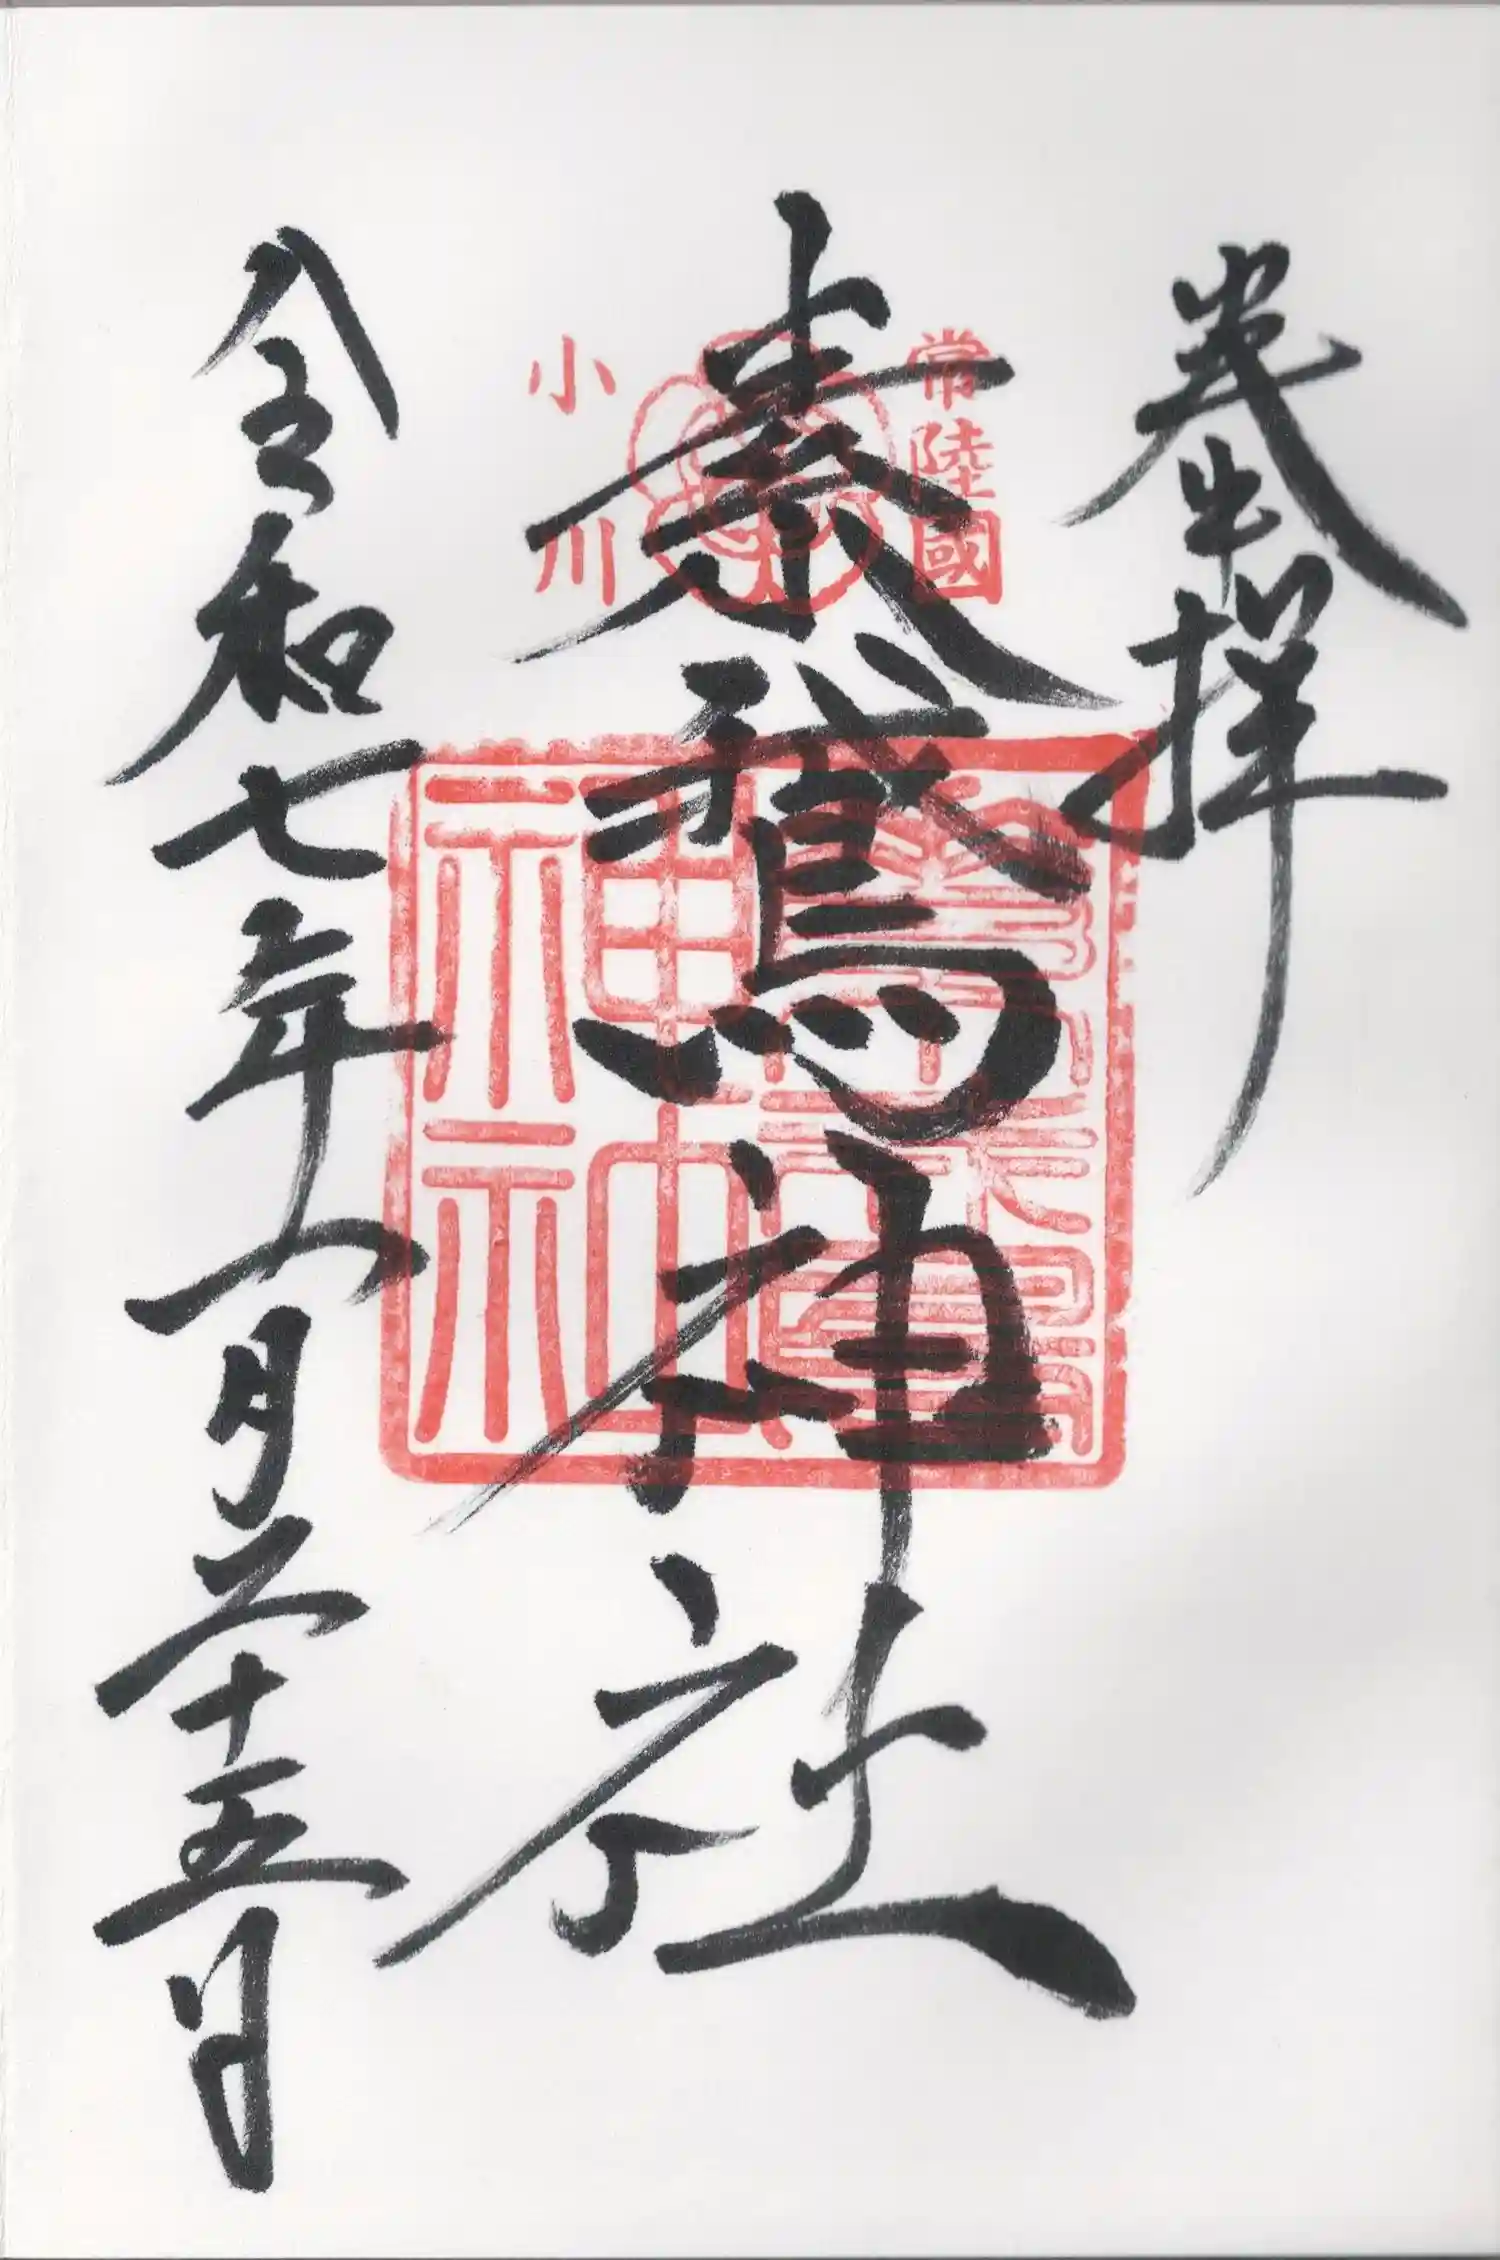 奉拝
常陸國
素鵞神社
小川
令和七年八月二十五日
素鵞神社神社